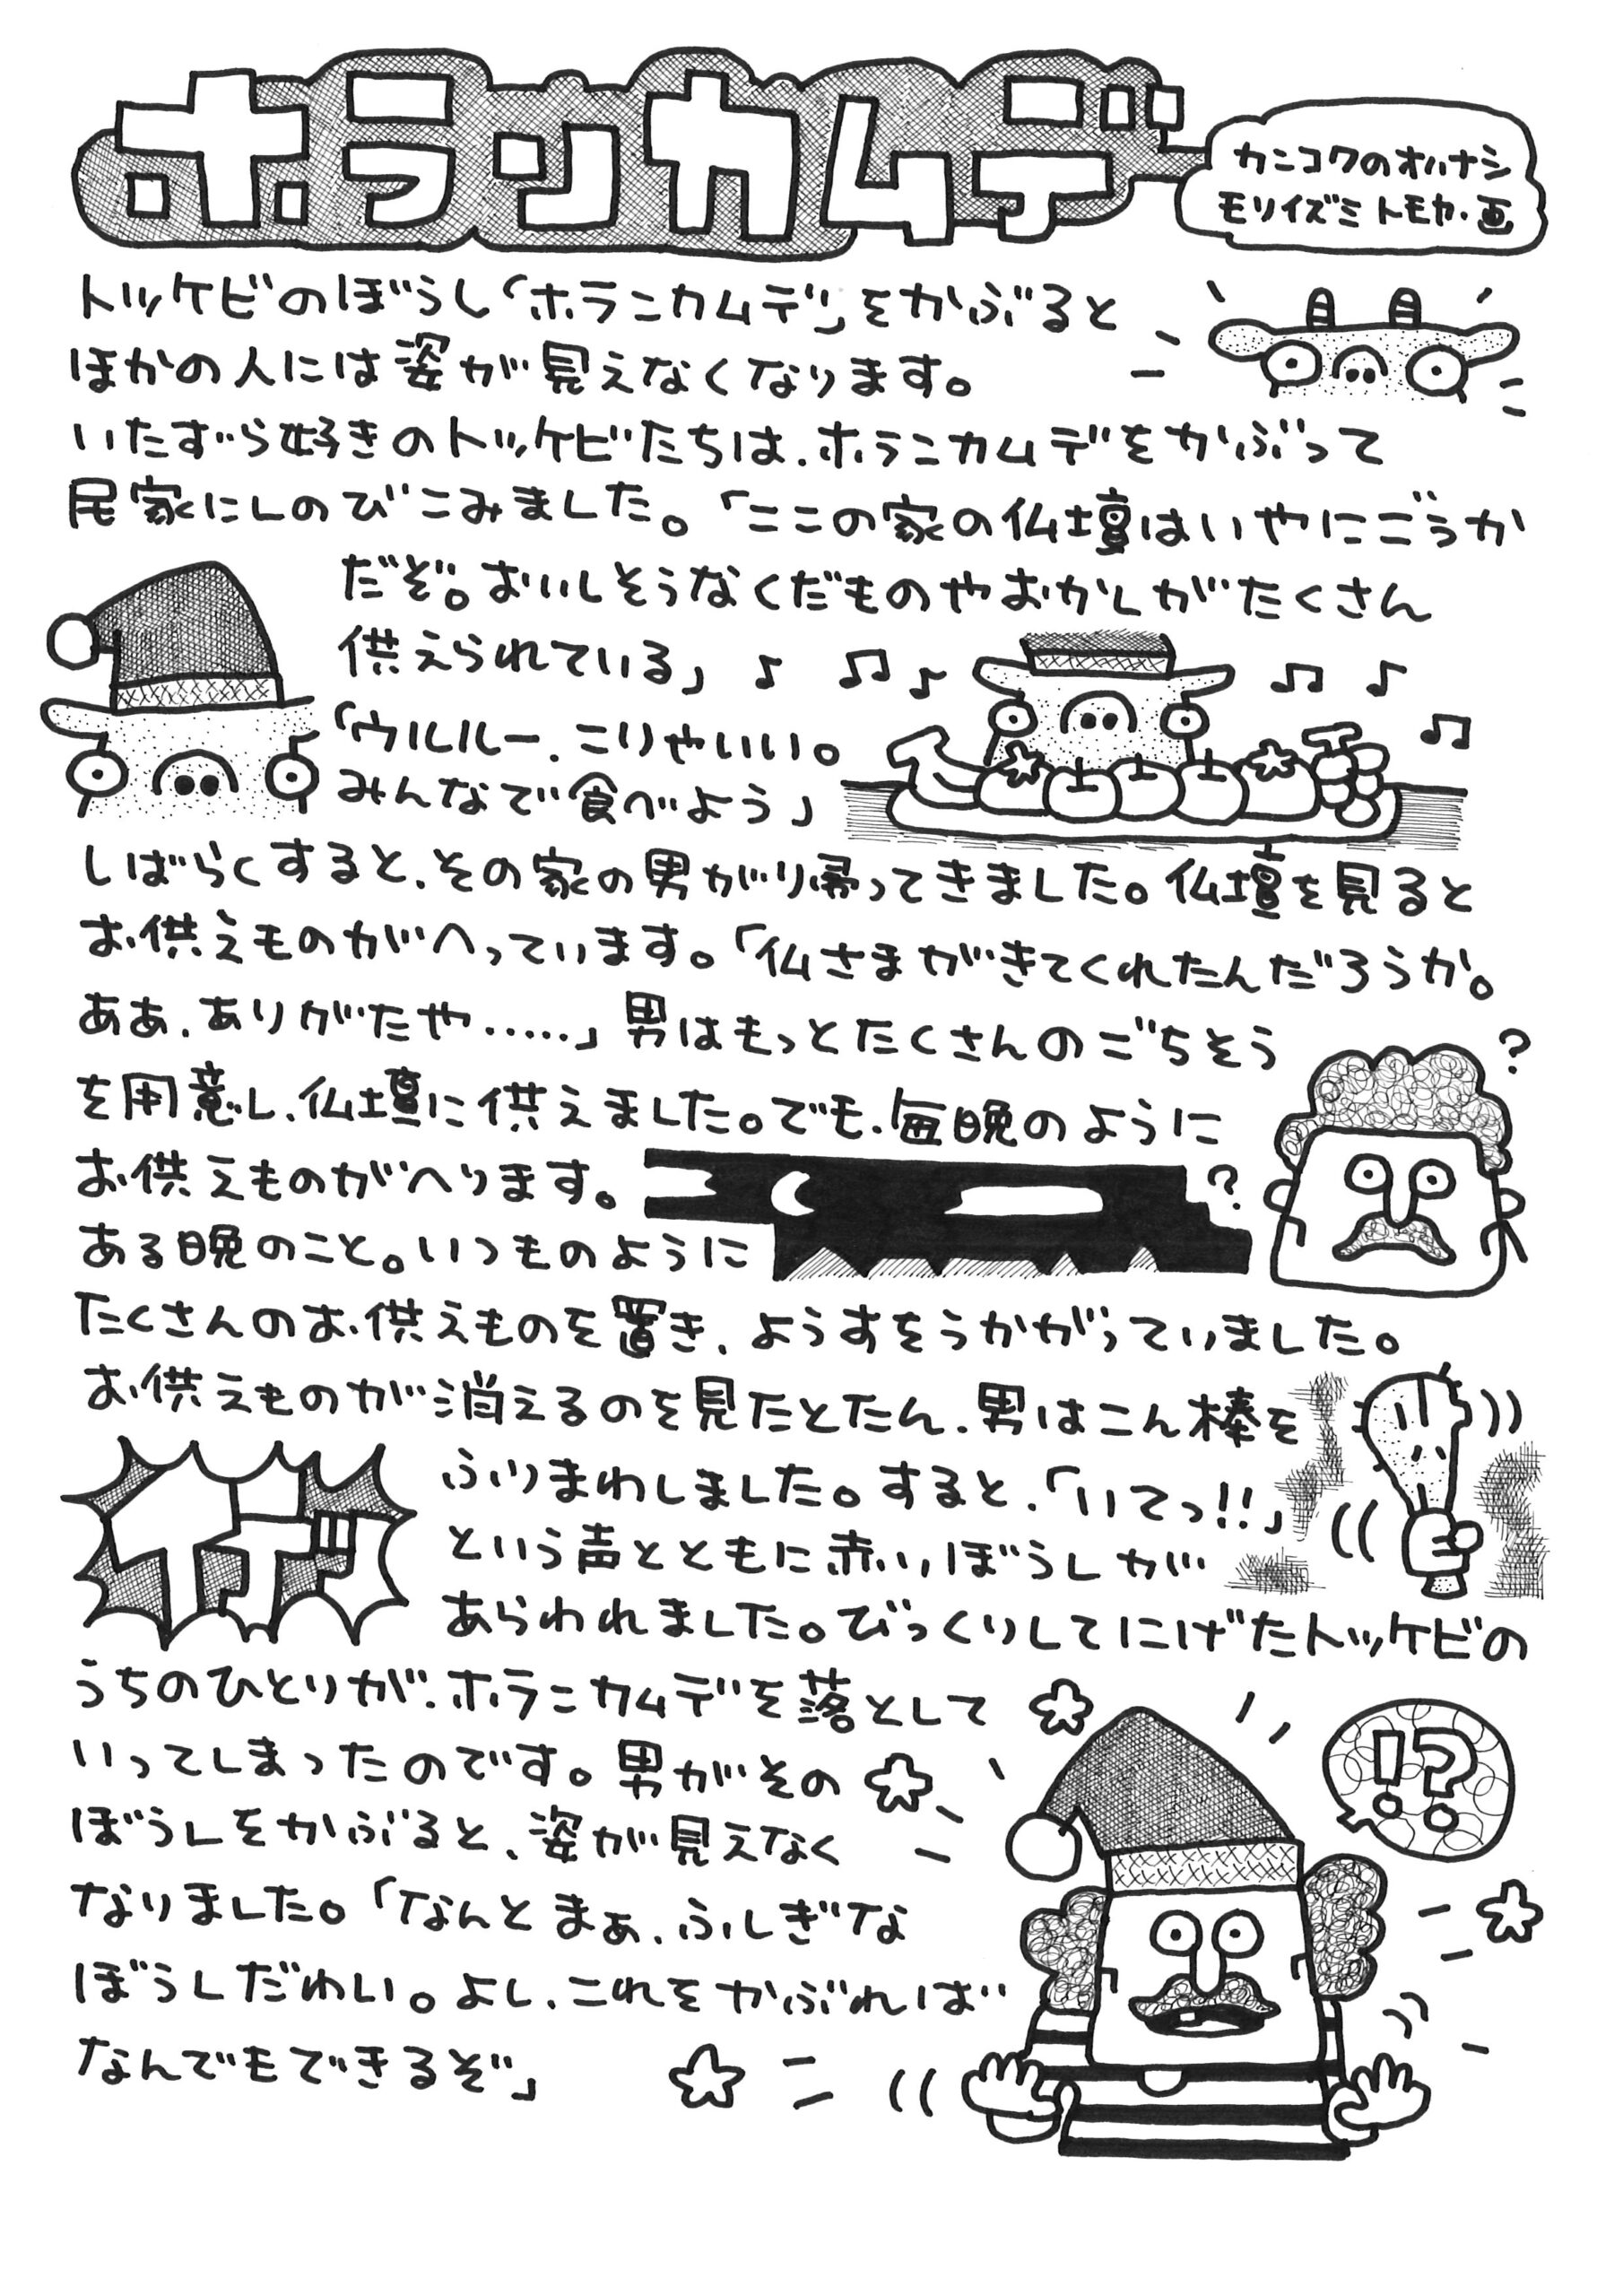 ホランカムデ
カンコクのオハナシ
モリイズミトモヤ・画
トッケビのぼうし「ホランカムデ」をかぶると
ほかの人には姿が見えなくなります。
いたずら好きのトッケビたちは、ホランカムデをかぶって
民家にしのびこみました。「ここの家の仏壇はいやにごうか
だぞ。おいしそうなくだものやおかしがたくさん
供えられている」♪ ♫ ♪ ♫ ♪ ♫
「ウルルー、こりゃいい。
みんなで食べよう」
しばらくすると、その家の男が帰ってきました。仏壇を見ると
お供えものがへっています。「仏さまがきてくれたんだろうか。
ああ、ありがたや……」男はもっとたくさんのごちそう
を用意し、仏壇に供えました。でも、毎晩のように
お供えものがへります。
?
?
ある晩のこと。いつものように
たくさんのお供えものを置き、ようすをうかがっていました。
お供えものが消えるのを見たとたん、男はこん棒を
ふりまわしました。すると、「いてっ!!」
という声とともに赤いぼうしが
あらわれました。びっくりしてにげたトッケビの
イテッ
うちのひとりが、ホランカムデを落として
いってしまったのです。男がその
ぼうしをかぶると、姿が見えなく
なりました。「なんとまぁ、ふしぎな
ぼうしだわい。よし、これをかぶれば
なんでもできるぞ」
!?